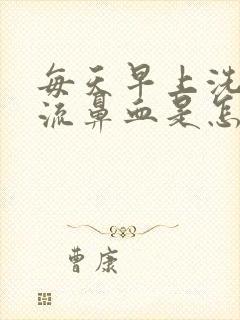 每天早上洗
流鼻血是怎
曹康